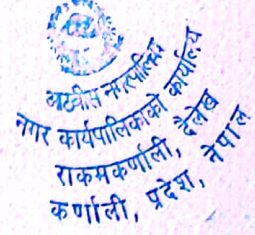 आठबीस नगरपालिका
नगर कार्यपालिकाको कार्यालय
राकमकर्णाली, दैलेख
कर्णाली, प्रदेश, नेपाल